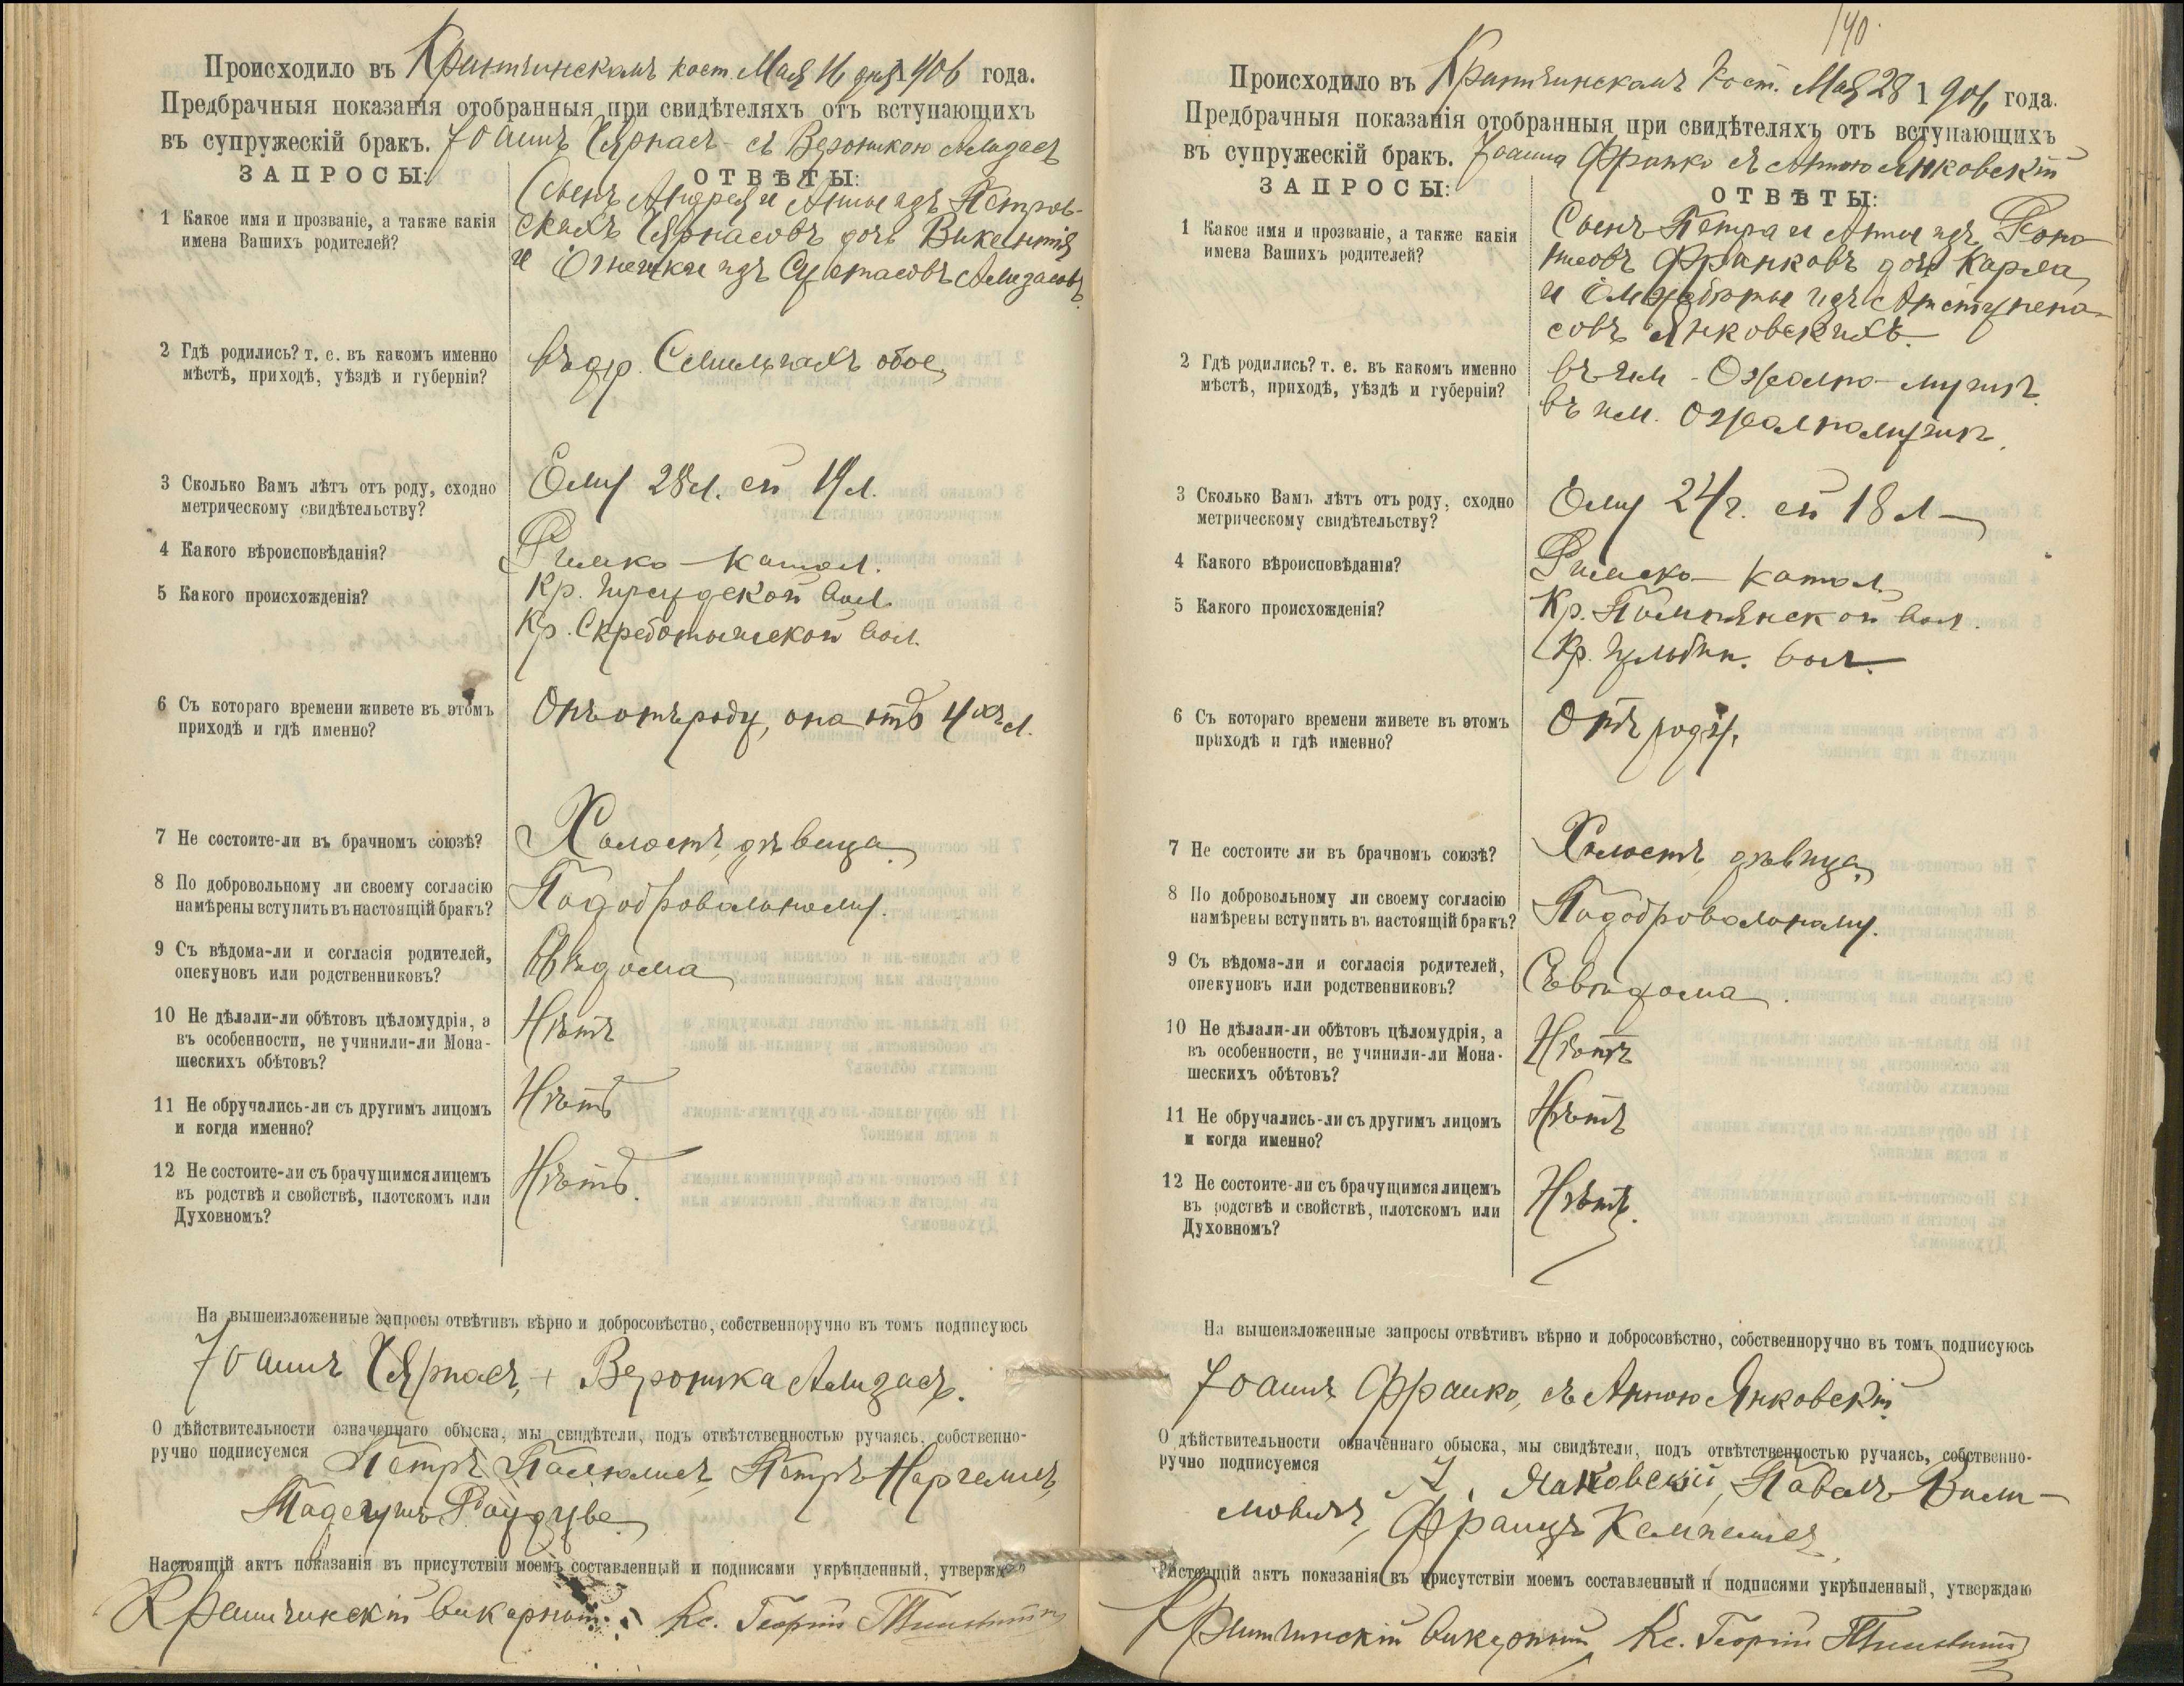 Происходило въ Крынчинскомъ кост. Мая 16 дня 1906 года.
Предбрачныя показанія отобранныя при свидѣтеляхъ отъ вступающихъ
въ супружескій бракъ. Іоаннъ съ Вероникою
ЗАПРОСЫ: ОТВѢТЫ:
1 Какое имя и прозваніе, а также какія
имена Вашихъ родителей?
Сынъ Андрея и Анны изъ Петров-
скихъ дочь Викентія
и изъ
2 Гдѣ родились? т. е. въ какомъ именно
мѣстѣ, приходѣ, уѣздѣ и губерніи?
въ др. Смильгахъ обое
3 Сколько Вамъ лѣтъ отъ роду, сходно
метрическому свидѣтельству?
Ему 28 л. ей 19 л.
4 Какого вѣроисповѣданія?
Римко-катол.
5 Какого происхожденія?
Кр. вол.
Кр. Скреботышской вол.
6 Съ котораго времени живете въ этомъ
приходѣ и гдѣ именно?
Онъ отъ роду, она отъ 4хъ л.
7 Не состоите-ли въ брачномъ союзѣ?
Холостъ, дѣвица
8 По добровольному ли своему согласію
намѣрены вступить въ настоящій бракъ?
По добровольному.
9 Съ вѣдома-ли и согласія родителей,
опекуновъ или родственниковъ?
вѣдома
10 Не дѣлали-ли обѣтовъ цѣломудрія, а
въ особенности, не учинили-ли Мона-
шескихъ обѣтовъ?
Нѣтъ
11 Не обручались-ли съ другимъ лицомъ
и когда именно?
Нѣтъ
12 Не состоите-ли съ брачущимся лицемъ
въ родствѣ и свойствѣ, плотскомъ или
Духовномъ?
Нѣтъ.
На вышеизложенные запросы отвѣтивъ вѣрно и добросовѣстно, собственноручно въ томъ подписуюсь
Іоаннъ + Вероника
О дѣйствительности означеннаго обыска, мы свидѣтели, подъ отвѣтственностью ручаясь, собственно-
ручно подписуемся Петръ Петръ
Тадеушъ
Настоящій актъ показанія въ присутствіи моемъ составленный и подписями укрѣпленный, утверждаю
викарный Кс. Георгій
140.
Происходило въ Крынчинскомъ кост. Мая 28 1906 года.
Предбрачныя показанія отобранныя при свидѣтеляхъ отъ вступающихъ
въ супружескій бракъ. Іоанна Франко съ Анною Янковскій
ЗАПРОСЫ: ОТВѢТЫ:
1 Какое имя и прозваніе, а также какія
имена Вашихъ родителей?
Сынъ Петра и Анны изъ
Франковъ дочь Карла
и изъ
совъ Янковскихъ.
2 Гдѣ родились? т. е. въ какомъ именно
мѣстѣ, приходѣ, уѣздѣ и губерніи?
въ им.
въ им.
3 Сколько Вамъ лѣтъ отъ роду, сходно
метрическому свидѣтельству?
Ему 24 г. ей 18 л
4 Какого вѣроисповѣданія?
Римско-катол.
5 Какого происхожденія?
Кр. Помпянской вол.
Кр. вол.
6 Съ котораго времени живете въ этомъ
приходѣ и гдѣ именно?
Отъ роду.
7 Не состоите ли въ брачномъ союзѣ?
Холостъ дѣвица
8 По добровольному ли своему согласію
намѣрены вступить въ настоящій бракъ?
По добровольному.
9 Съ вѣдома-ли и согласія родителей,
опекуновъ или родственниковъ?
Съ вѣдома.
10 Не дѣлали-ли обѣтовъ цѣломудрія, а
въ особенности, не учинили-ли Мона-
шескихъ обѣтовъ?
Нѣтъ
11 Не обручались-ли съ другимъ лицомъ
и когда именно?
Нѣтъ
12 Не состоите-ли съ брачущимся лицемъ
въ родствѣ и свойствѣ, плотскомъ или
Духовномъ?
Нѣтъ.
На вышеизложенные запросы отвѣтивъ вѣрно и добросовѣстно, собственноручно въ томъ подписуюсь
Іоаннъ Франко, съ Анною Янковскій
О дѣйствительности означеннаго обыска, мы свидѣтели, подъ отвѣтственностью ручаясь, собственно-
ручно подписуемся Янковскій, Павелъ Вили-
мовичъ, Францъ
Настоящій актъ показанія въ присутствіи моемъ составленный и подписями укрѣпленный, утверждаю
Крынчинскій викарный Кс. Георгій